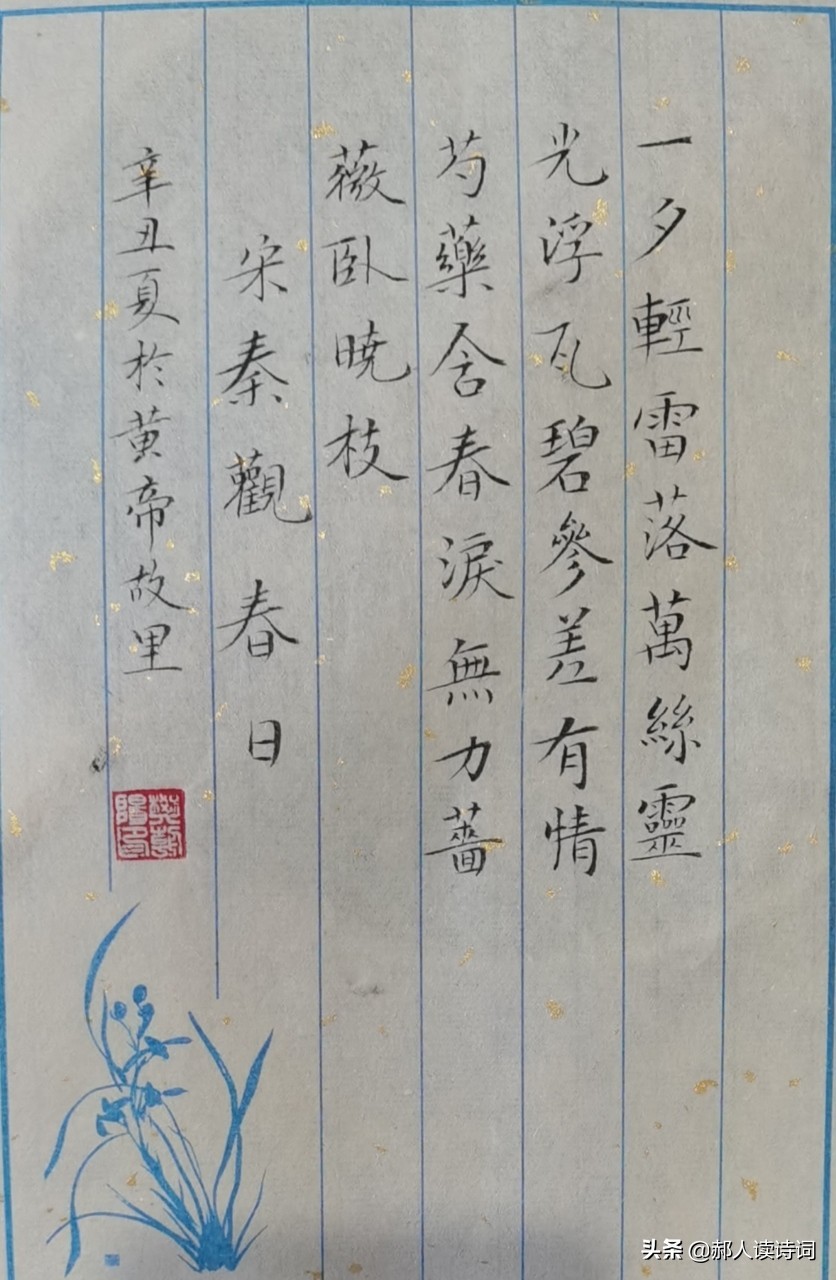 一夕輕雷落萬絲靈
光浮瓦碧參差有情
芍藥含春淚無力薔
薇卧暁枝
宋秦觀春日
辛丑夏於黄帝故里
头条 @郝人读诗词